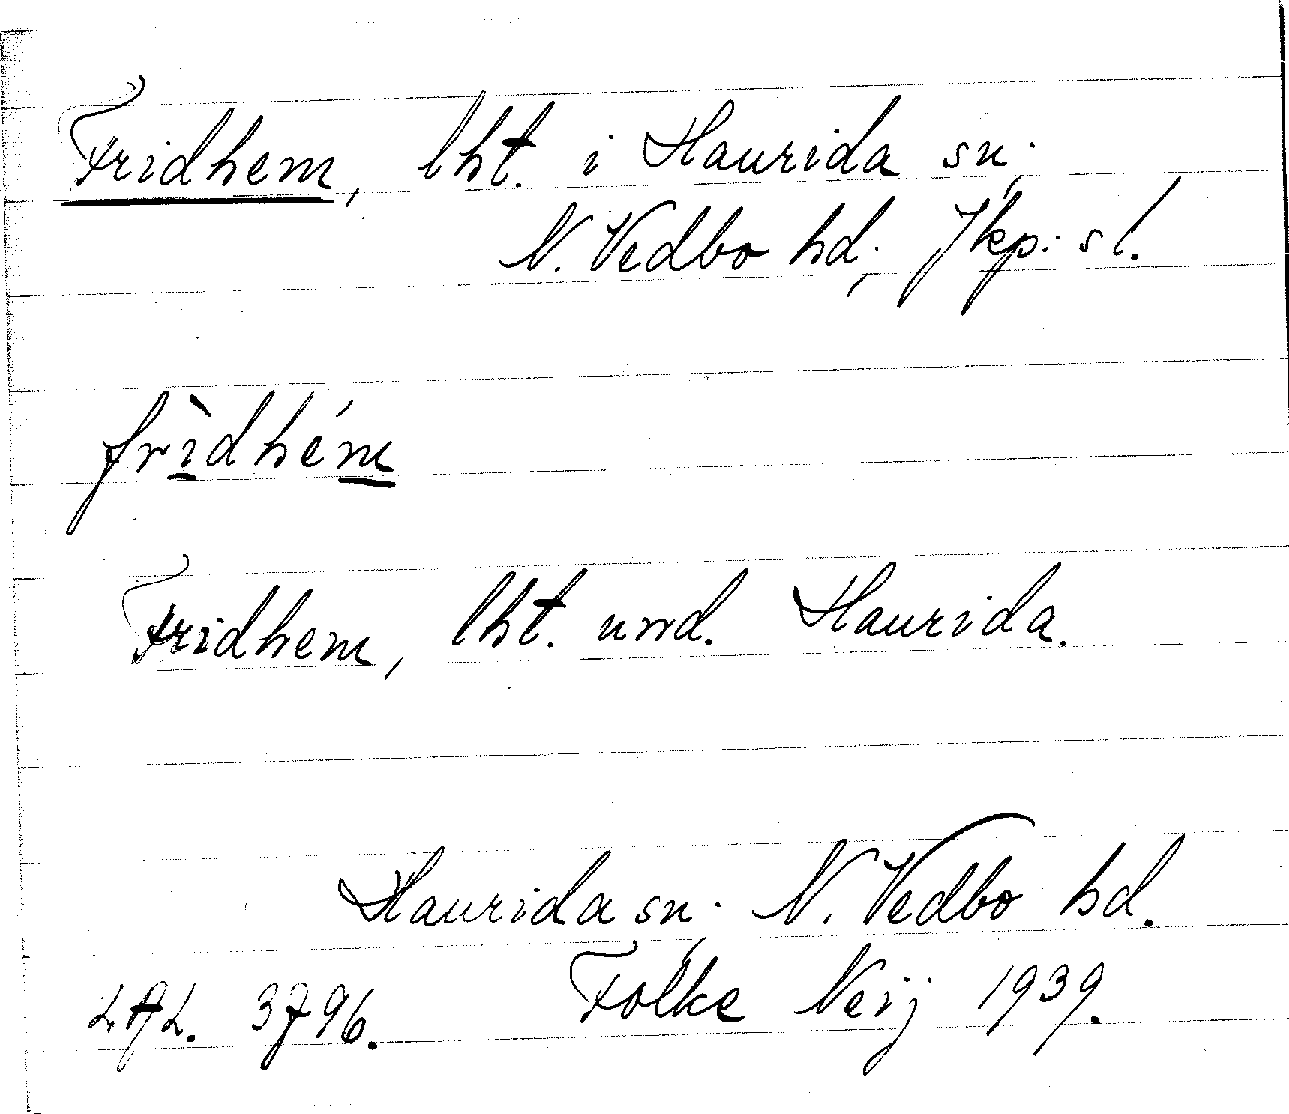 Fridhem, lht. i Haurida sn;
N. Vedbo hd; Jkp:s l.
frìdhém
Fridhem, lht. und. Haurida.
Haurida sn; N. Vedbo hd.
LAL. 3796. Folke Neij 1939.